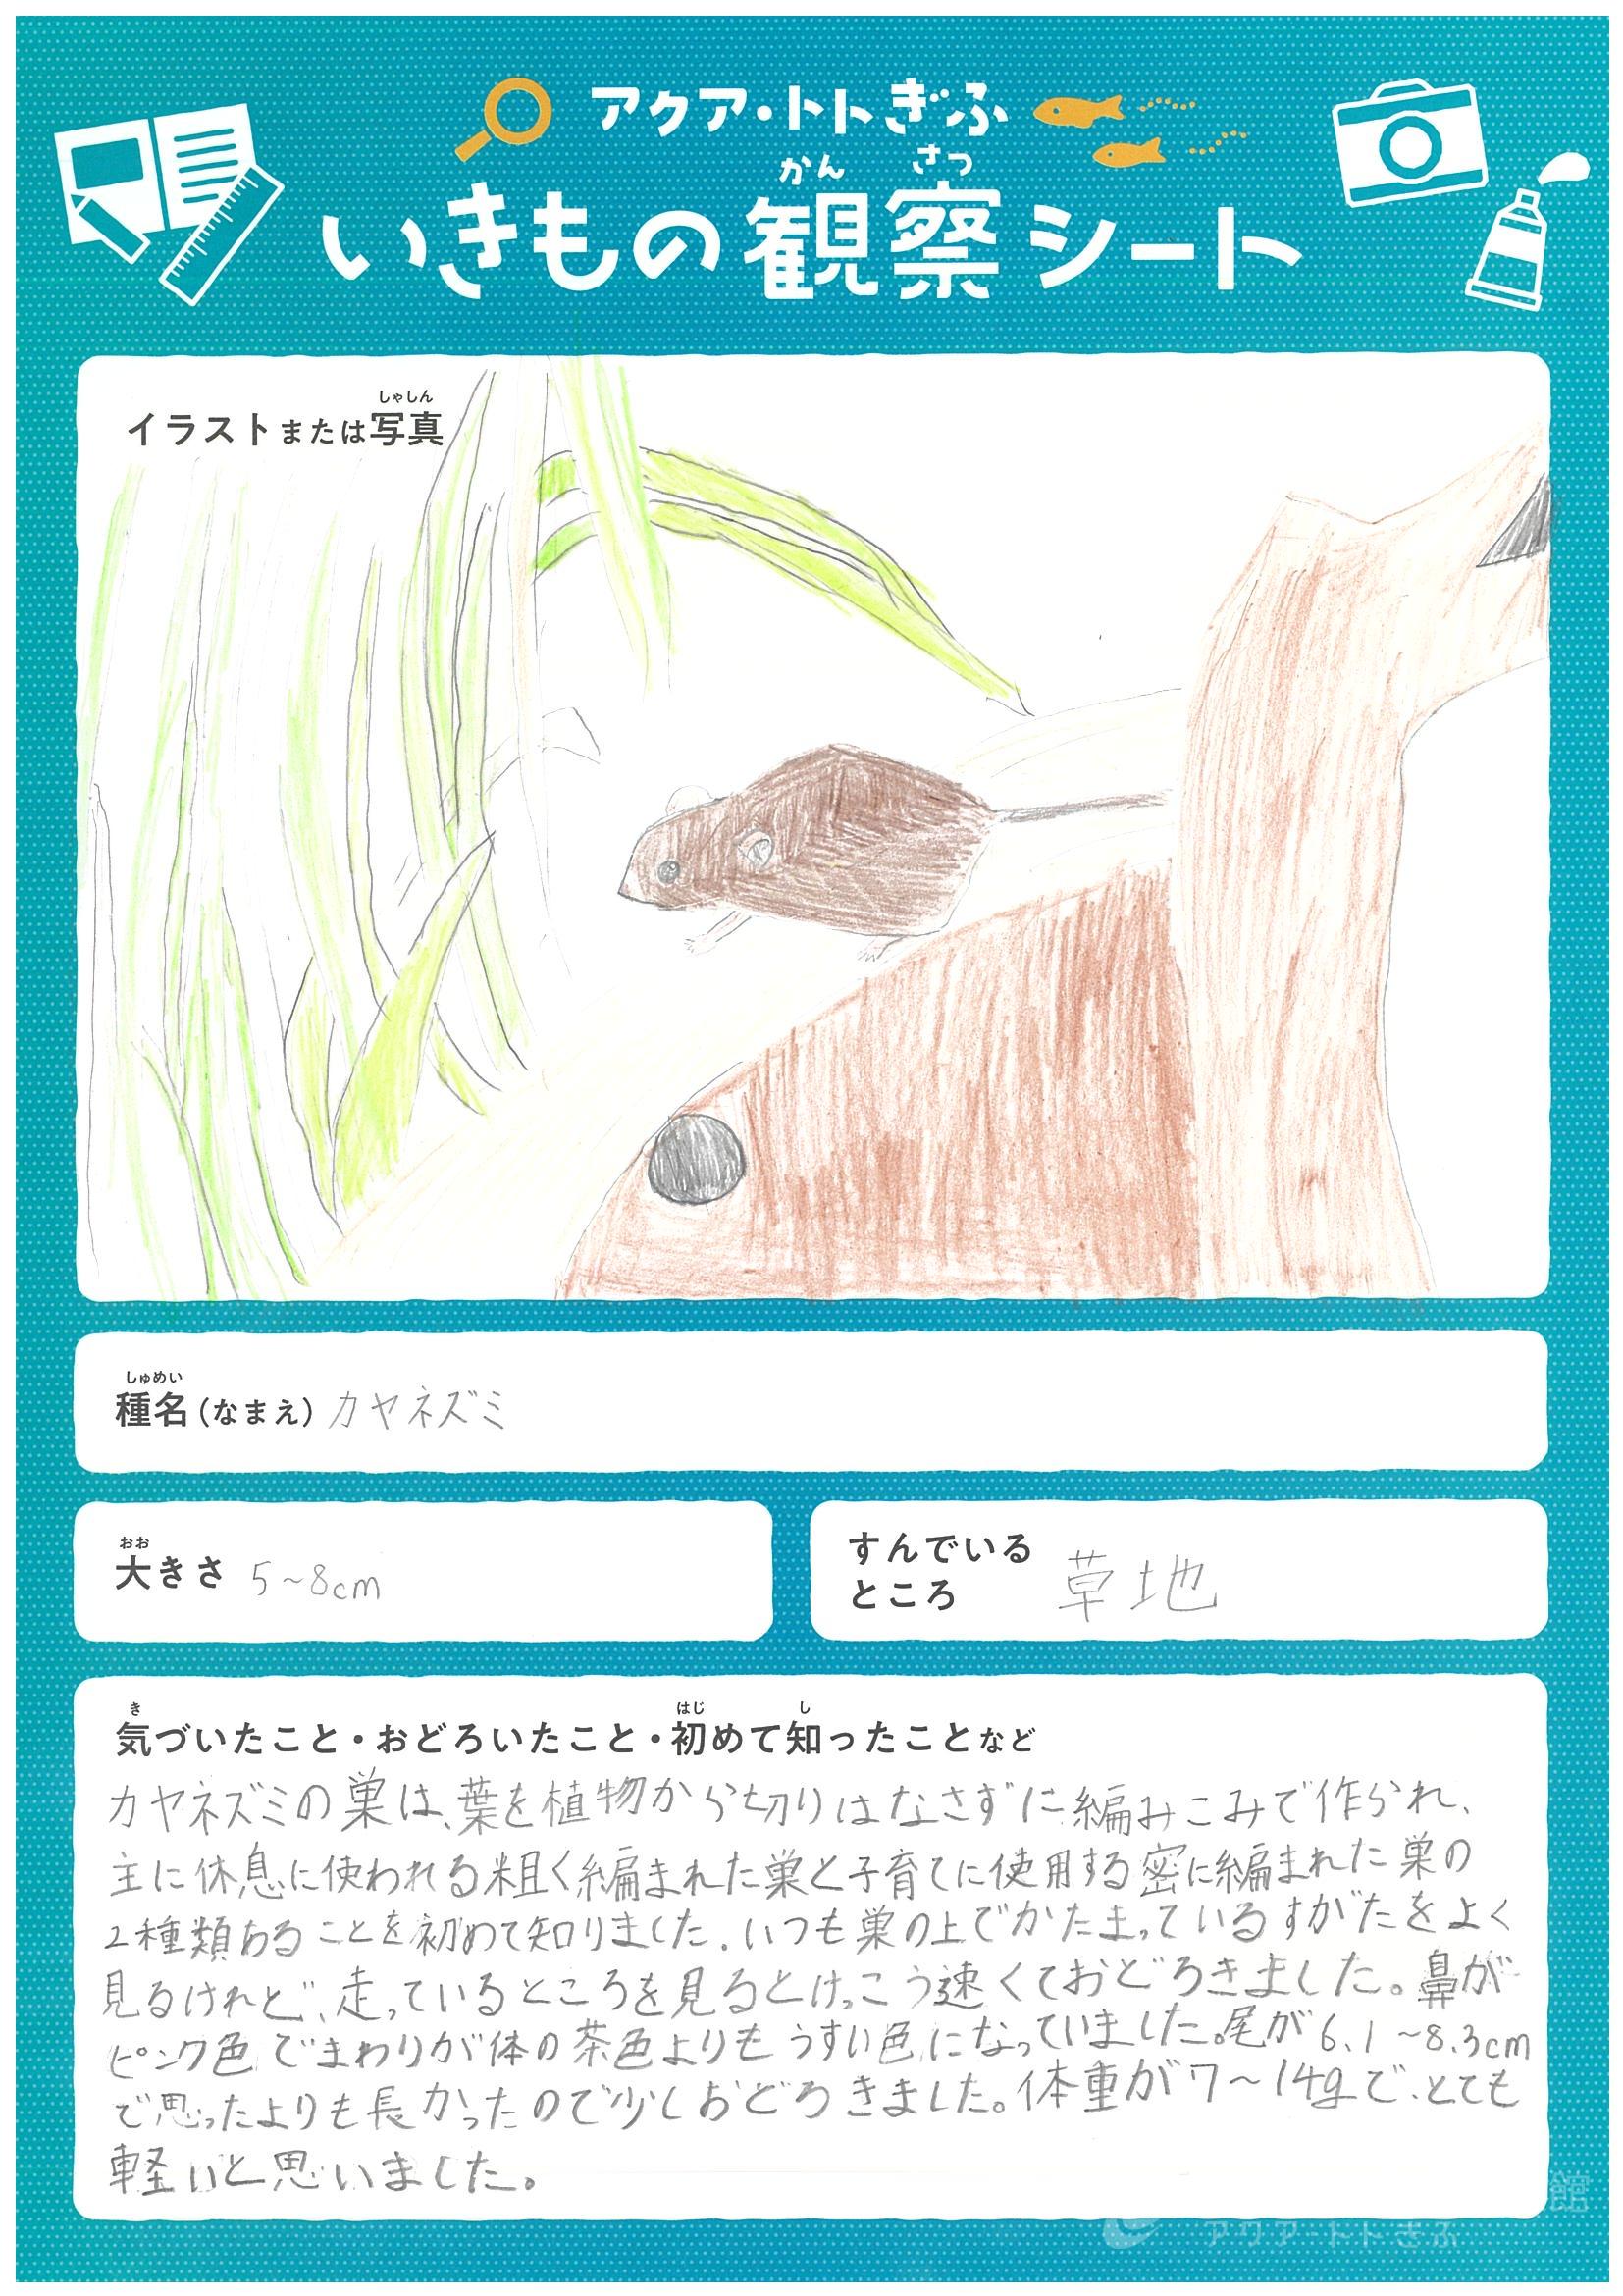 アクア・トトぎふ
かん さつ
いきもの観察シート
しゃしん
イラストまたは写真
しゅめい
種名(なまえ) カヤネズミ
おお
大きさ 5~8cm
すんでいる
ところ 草地
き はじ し
気づいたこと・おどろいたこと・初めて知ったことなど
カヤネズミの巣は、葉を植物から切りはなさずに編みこみで作られ、
主に休息に使われる粗く編まれた巣と子育てに使用する密に編まれた巣の
2種類あることを初めて知りました。いつも巣の上でかたまっているすがたをよく
見るけれど、走っているところを見るとけっこう速くておどろきました。鼻が
ピンク色でまわりが体の茶色よりもうすい色になっていました。尾が6.1~8.3cm
で思ったよりも長かったので少しおどろきました。体重が7~14gで、とても
軽いと思いました。
館
アクア・トトぎふ